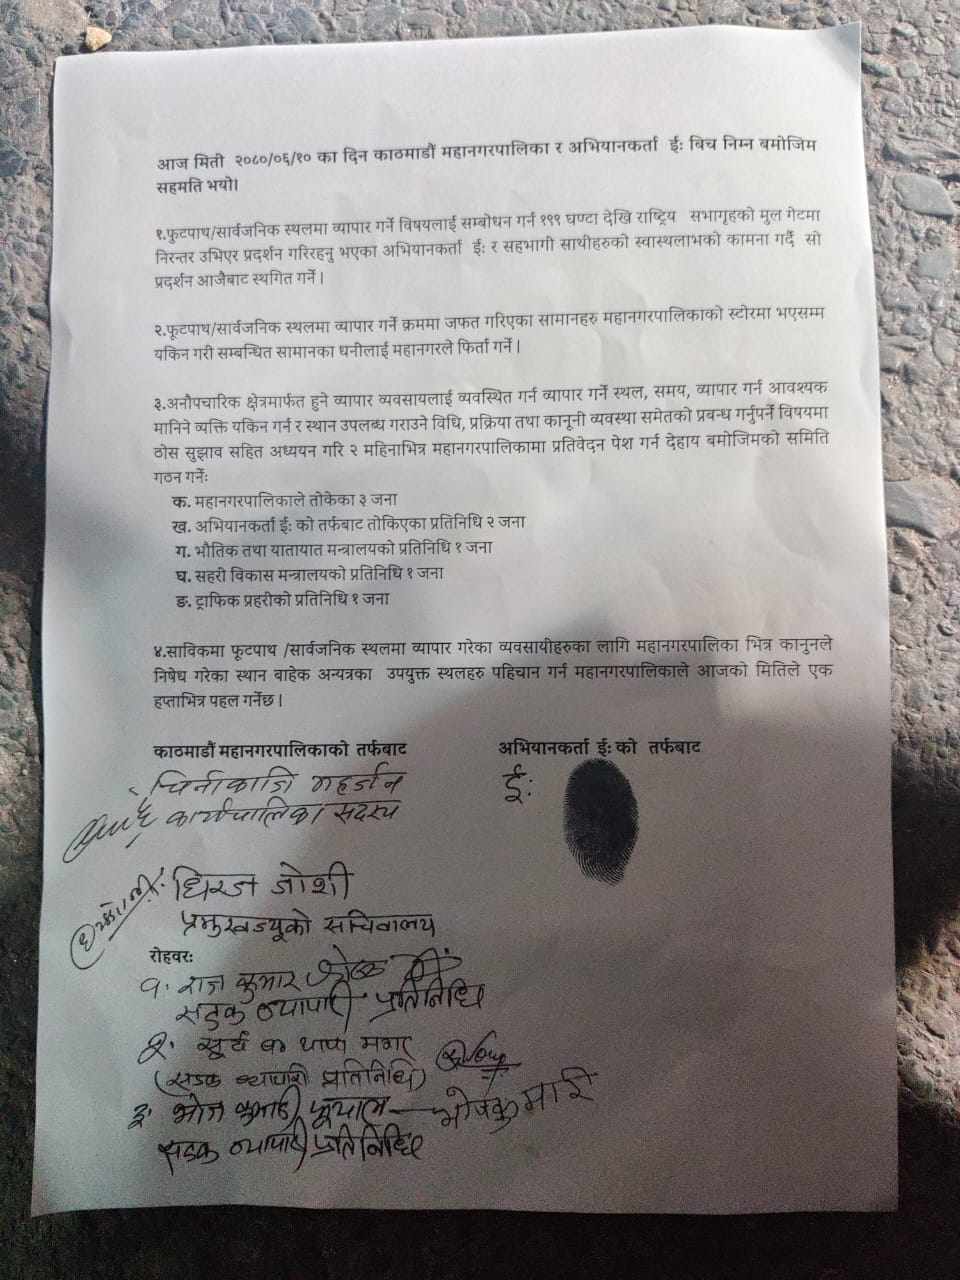 आज मिती २०८०/०६/१० का दिन काठमाडौं महानगरपालिका र अभियानकर्ता ईः बिच निम्न बमोजिम
सहमति भयो।
१.फुटपाथ/सार्वजनिक स्थलमा व्यापार गर्ने विषयलाई सम्बोधन गर्न १९९ घण्टा देखि राष्ट्रिय सभागृहको मुल गेटमा
निरन्तर उभिएर प्रदर्शन गरिरहनु भएका अभियानकर्ता ईः र सहभागी साथीहरुको स्वास्थलाभको कामना गर्दै सो
प्रदर्शन आजैबाट स्थगित गर्ने ।
२.फूटपाथ/सार्वजनिक स्थलमा व्यापार गर्ने क्रममा जफत गरिएका सामानहरु महानगरपालिकाको स्टोरमा भएसम्म
यकिन गरी सम्बन्धित सामानका धनीलाई महानगरले फिर्ता गर्ने ।
३.अनौपचारिक क्षेत्रमार्फत हुने व्यापार व्यवसायलाई व्यवस्थित गर्न व्यापार गर्ने स्थल, समय, व्यापार गर्न आवश्यक
मानिने व्यक्ति यकिन गर्न र स्थान उपलब्ध गराउने विधि, प्रक्रिया तथा कानूनी व्यवस्था समेतको प्रबन्ध गर्नुपर्ने विषयमा
ठोस सुझाव सहित अध्ययन गरि २ महिनाभित्र महानगरपालिकामा प्रतिवेदन पेश गर्न देहाय बमोजिमको समिति
गठन गर्नेः
क. महानगरपालिकाले तोकेका ३ जना
ख. अभियानकर्ता ईः को तर्फबाट तोकिएका प्रतिनिधि २ जना
ग. भौतिक तथा यातायात मन्त्रालयको प्रतिनिधि १ जना
घ. सहरी विकास मन्त्रालयको प्रतिनिधि १ जना
ङ. ट्राफिक प्रहरीको प्रतिनिधि १ जना
४.साविकमा फूटपाथ /सार्वजनिक स्थलमा व्यापार गरेका व्यवसायीहरुका लागि महानगरपालिका भित्र कानुनले
निषेध गरेका स्थान बाहेक अन्यत्रका उपयुक्त स्थलहरु पहिचान गर्न महानगरपालिकाले आजको मितिले एक
हप्ताभित्र पहल गर्नेछ ।
काठमाडौं महानगरपालिकाको तर्फबाट
अभियानकर्ता ईः को तर्फबाट
चिनीकाजि महर्जन
ईः
कार्यपालिका सदस्य
धिरज जोशी
प्रमुखज्यूको सचिवालय
रोहवरः
१. राज कुमार
सडक व्यापारी प्रतिनिधि
२. सूर्य ब थापा मगर
(सडक व्यापारी प्रतिनिधि)
३. भोज कुमारी फूयाल भोजकुमारी
सडक व्यापारी प्रतिनिधि